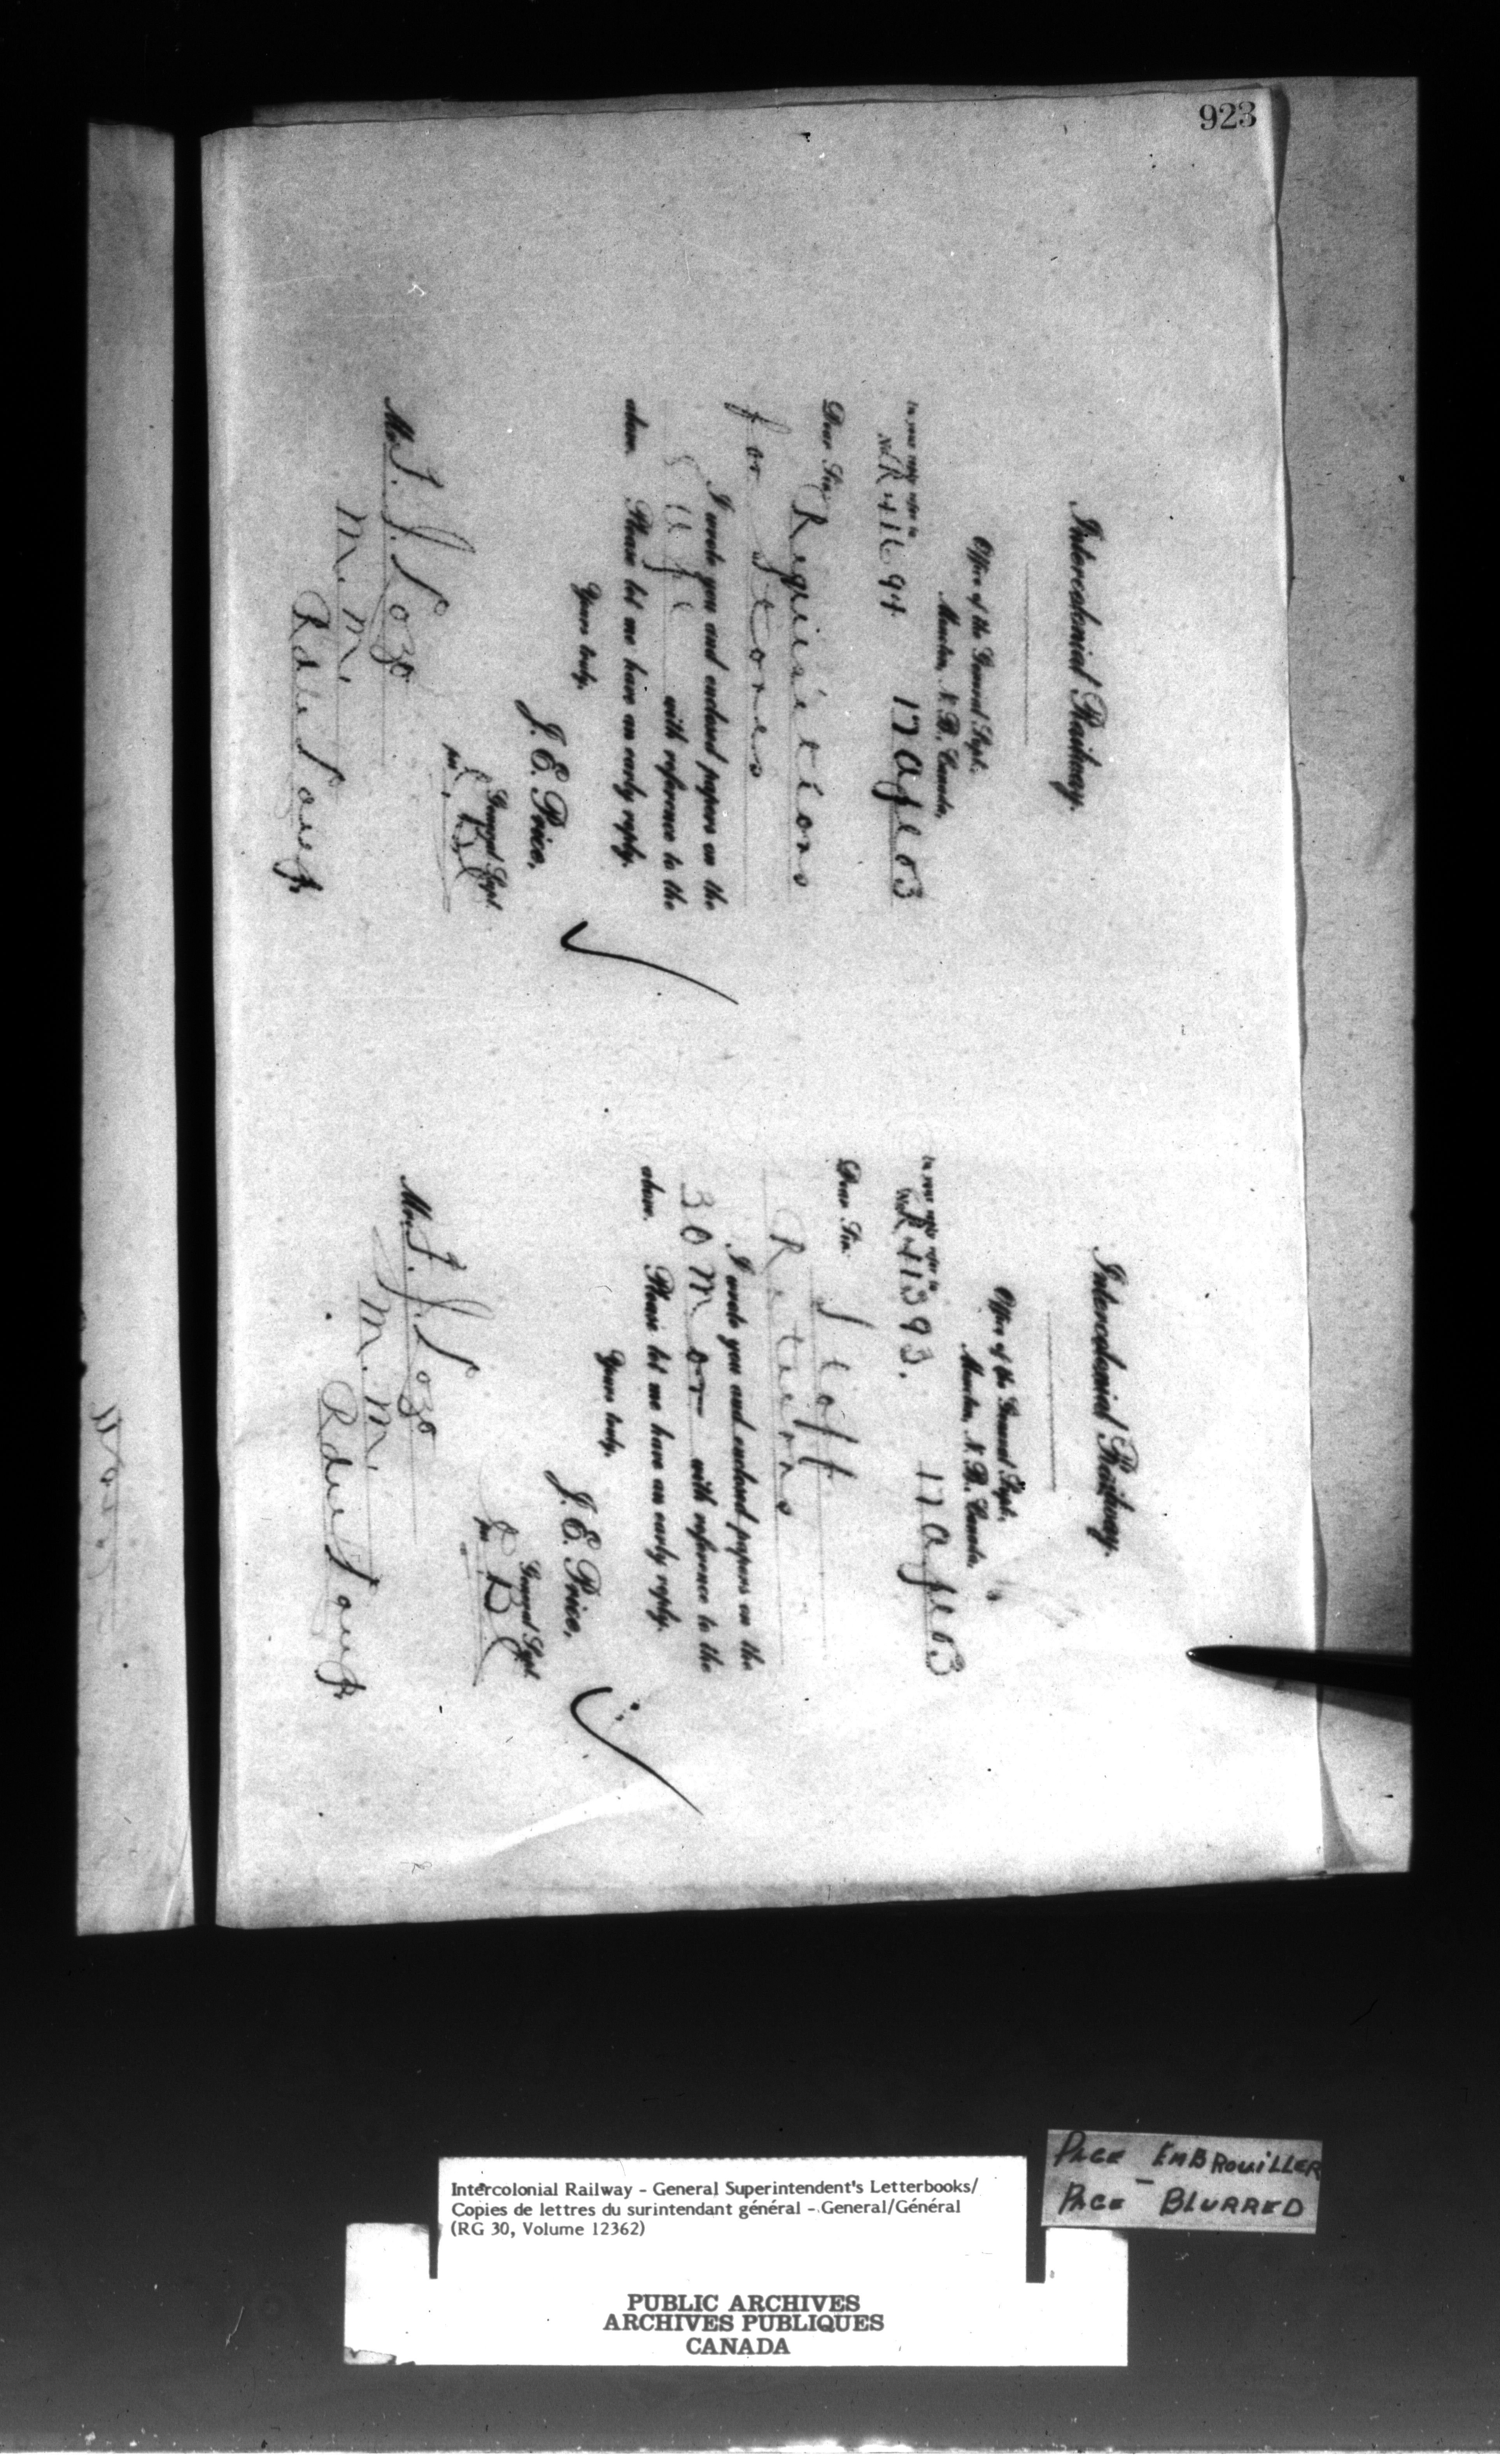 923
Intercolonial Railway.
Office of the General Supt.
Moncton, N. B. Canada,
In your reply refer to
No. R 411694 17 Apl 03
Dear Sir:
Requisitions
for Stores
I wrote you and enclosed papers on the
8 Apl with reference to the
above. Please let me have an early reply.
Yours truly,
J. E. Price,
General Supt.
per
Mr. J. J. Lozo
M. M.
Rdu Loup
Intercolonial Railway.
Office of the General Supt.
Moncton, N. B. Canada,
In your reply refer to
No. R 411393. 17 Apl 03
Dear Sir:
Staff
Returns
I wrote you and enclosed papers on the
30 Mar with reference to the
above. Please let me have an early reply.
Yours truly,
J. E. Price,
General Supt.
per
Mr. J. J. Lozo
M. M.
Rdu Loup
PAGE EMBROUILLER
PAGE - BLURRED
Intercolonial Railway - General Superintendent's Letterbooks/
Copies de lettres du surintendant général - General/Général
(RG 30, Volume 12362)
PUBLIC ARCHIVES
ARCHIVES PUBLIQUES
CANADA